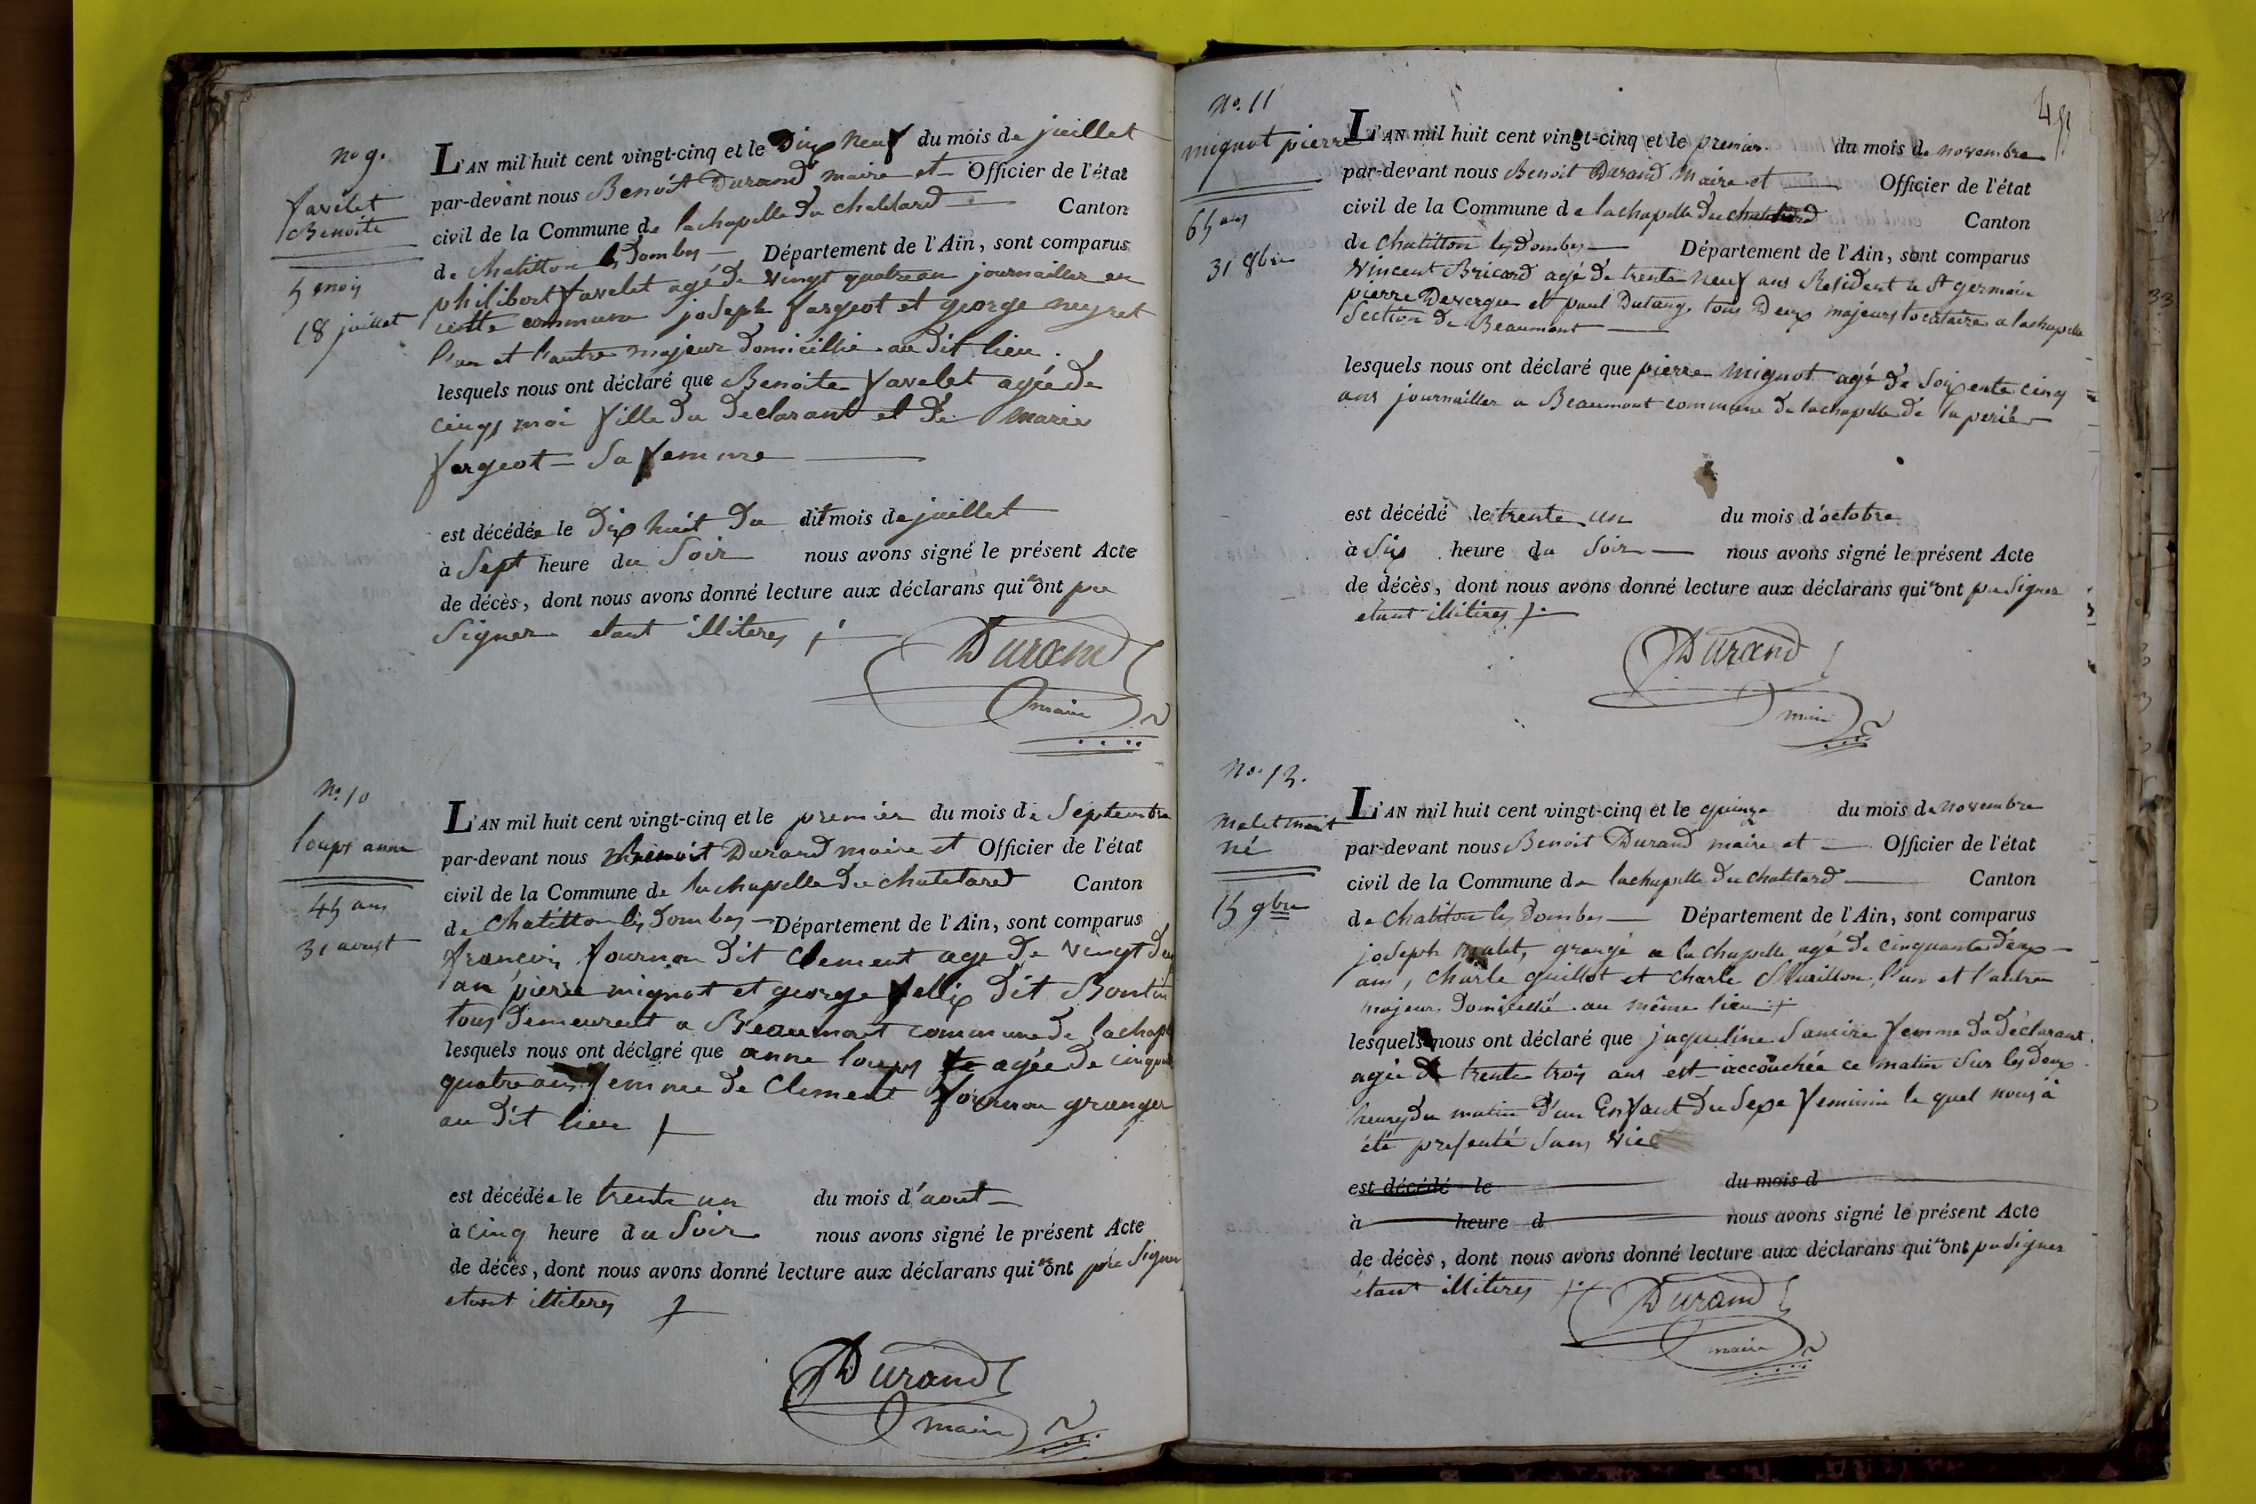 no 9.
favelet
Benoite
5 mois
18 juillet
L'AN mil huit cent vingt-cinq et le Dix neuf du mois de juillet
par-devant nous Benoit Durand maire et Officier de l'état
civil de la Commune de lachapelle du chatelard Canton
de Chatillon les Dombes Département de l'Ain, sont comparus
philibert favelet agé de vingt quatre an journaillier en
cette commune joseph fargeot et george neyret
l'un et l'autre majeur domicillié au dit lieu.
lesquels nous ont déclaré que Benoite favelet agée de
cinq moi fille du declarant et de marie
fargeot sa femme
est décédée le Dix huit du dit mois de juillet
à Sept heure du Soir nous avons signé le présent Acte
de décès, dont nous avons donné lecture aux déclarans qui n'ont pu
Signer etant illiteres
Durand
maire
No. 10
loups anne
45 ans
31 aoust
L'AN mil huit cent vingt-cinq et le premier du mois de Septembre
par-devant nous Benoit Durand maire et Officier de l'état
civil de la Commune de lachapelle du chatelard Canton
de Chatillon les Dombes Département de l'Ain, sont comparus
francois fournon dit Clement agé de vingt deux
an pierre mignot et george felix dit Bontin
tous demeurent a Beaumont commune de lachapelle
lesquels nous ont déclaré que anne loups agée de
quatre ans femme de Clement fournon granger
au dit lieu
est décédée le trente un du mois d'aout
à cinq heure du Soir nous avons signé le présent Acte
de décès, dont nous avons donné lecture aux déclarans qui n'ont pu Signer
etant illiteres
Durand
maire
No. 11
mignot pierre
65 ans
31 8bre
L'AN mil huit cent vingt-cinq et le premier du mois de novembre
par-devant nous Benoit Durand Maire et Officier de l'état
civil de la Commune de lachapelle du chatelard Canton
de Chatillon les Dombes Département de l'Ain, sont comparus
Vincent Bricard agé de trente neuf ans Resident a St germain
pierre Devergue et paul Dutang, tous Deux majeurs locataire a lachapelle
Section de Beaumont
lesquels nous ont déclaré que pierre mignot agé de Soixente cinq
ans journaillier a Beaumont commune de lachapelle de
est décédé le trente un du mois d'octobre
à Six heure du Soir nous avons signé le présent Acte
de décès, dont nous avons donné lecture aux déclarans qui n'ont pu Signer
etant illitires
Durand
maire
No. 12.
Malet mort
né
15 9bre
L'AN mil huit cent vingt-cinq et le quinze du mois de novembre
par-devant nous Benoit Durand maire et Officier de l'état
civil de la Commune de lachapelle du chatelard Canton
de Chatillon les Dombes Département de l'Ain, sont comparus
joseph Malet, grangé a la chapelle agé de cinquante deux
ans, Charle guillot et Charle l'un et l'autre
majeur Domicellié au même lieu
lesquels nous ont déclaré que jaqueline femme du déclarant
agée de trente trois ans est accouchée ce matin Sur les deux
heures du matin d'un Enfant du Sexe feminin le quel nous à
été presenté Sans vie
est décédé le du mois d
à heure d nous avons signé le présent Acte
de décès, dont nous avons donné lecture aux déclarans qui n'ont pu Signer
étant illitires
Durand
maire